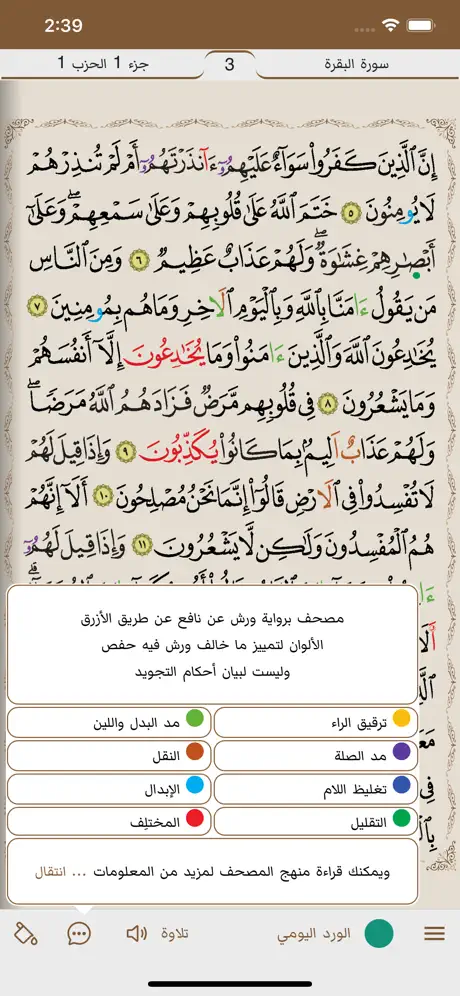 2:39
سورة البقرة
3
جزء 1 الحزب 1
إِنَّ ٱلَّذِينَ كَفَرُواْ سَوَآءٌ عَلَيْهِمُۥٓ ءَآنذَرْتَهُمُۥٓ أَمْ لَمْ تُنذِرْهُمْ
لَا يُومِنُونَ ٥ خَتَمَ ٱللَّهُ عَلَىٰ قُلُوبِهِمْ وَعَلَىٰ سَمْعِهِمْۖ وَعَلَىٰ
أَبْصَٰرِهِمْ غِشَٰوَةٞۖ وَلَهُمْ عَذَابٌ عَظِيمٞ ٦ وَمِنَ ٱلنَّاسِ
مَنْ يَقُولُ ءَامَنَّا بِٱللَّهِ وَبِٱلْيَوْمِ ٱلَاخِرِ وَمَا هُم بِمُومِنِينَ ٧
يُخَٰدِعُونَ ٱللَّهَ وَٱلَّذِينَ ءَامَنُواْ وَمَا يُخَٰدِعُونَ إِلَّآ أَنفُسَهُمْ
وَمَا يَشْعُرُونَ ٨ فِى قُلُوبِهِم مَّرَضٞ فَزَادَهُمُ ٱللَّهُ مَرَضاٗۖ
وَلَهُمْ عَذَابٌ اَلِيمُۢ بِمَا كَانُواْ يُكَذِّبُونَ ٩ وَإِذَا قِيلَ لَهُمْ
لَا تُفْسِدُواْ فِى ٱلَارْضِ قَالُوٓاْ إِنَّمَا نَحْنُ مُصْلِحُونَ ١٠ أَلَآ إِنَّهُمْ
هُمُ ٱلْمُفْسِدُونَ وَلَٰكِن لَّا يَشْعُرُونَ ١١ وَإِذَا قِيلَ لَهُمُۥٓ
مصحف برواية ورش عن نافع عن طريق الأزرق
الألوان لتمييز ما خالف ورش فيه حفص
وليست لبيان أحكام التجويد
ترقيق الراء
مد البدل واللين
مد الصلة
النقل
تغليظ اللام
الإبدال
التقليل
المختلِف
ويمكنك قراءة منهج المصحف لمزيد من المعلومات ... انتقال
الورد اليومي
تلاوة